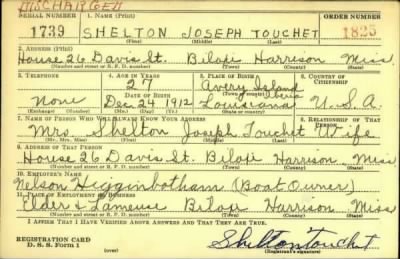 DISCHARGED
SERIAL NUMBER 1. NAME (Print) ORDER NUMBER
1739 SHELTON JOSEPH TOUCHET 1825
(First) (Middle) (Last)
2. ADDRESS (Print)
House 26 Davis St. Biloxi Harrison Miss
(Number and street or R. F. D. number) (Town) (County) (State)
3. TELEPHONE 4. AGE IN YEARS 5. PLACE OF BIRTH 6. COUNTRY OF CITIZENSHIP
27 Avery Island
DATE OF BIRTH (Town or county) Iberia
None Dec 24 1912 Louisiana U.S.A.
(Exchange) (Number) (Mo.) (Day) (Yr.) (State or country)
7. NAME OF PERSON WHO WILL ALWAYS KNOW YOUR ADDRESS 8. RELATIONSHIP OF THAT PERSON
Mrs. Shelton Joseph Touchet Wife
(Mr., Mrs., Miss) (First) (Middle) (Last)
9. ADDRESS OF THAT PERSON
House 26 Davis St. Biloxi Harrison Miss
(Number and street or R. F. D. number) (Town) (County) (State)
10. EMPLOYER'S NAME
Nelson Higginbotham (Boat Owner)
11. PLACE OF EMPLOYMENT OR BUSINESS
Elder & Lameuse Biloxi Harrison Miss
(Number and street or R. F. D. number) (Town) (County) (State)
I AFFIRM THAT I HAVE VERIFIED ABOVE ANSWERS AND THAT THEY ARE TRUE.
REGISTRATION CARD
D. S. S. Form 1 (over) Shelton Touchet